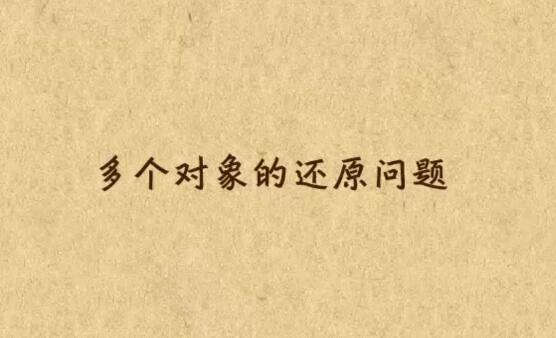 多个对象的还原问题